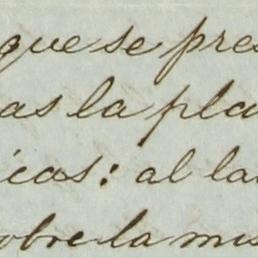 que se pres
as la pla
icas: al la
sobre la mis